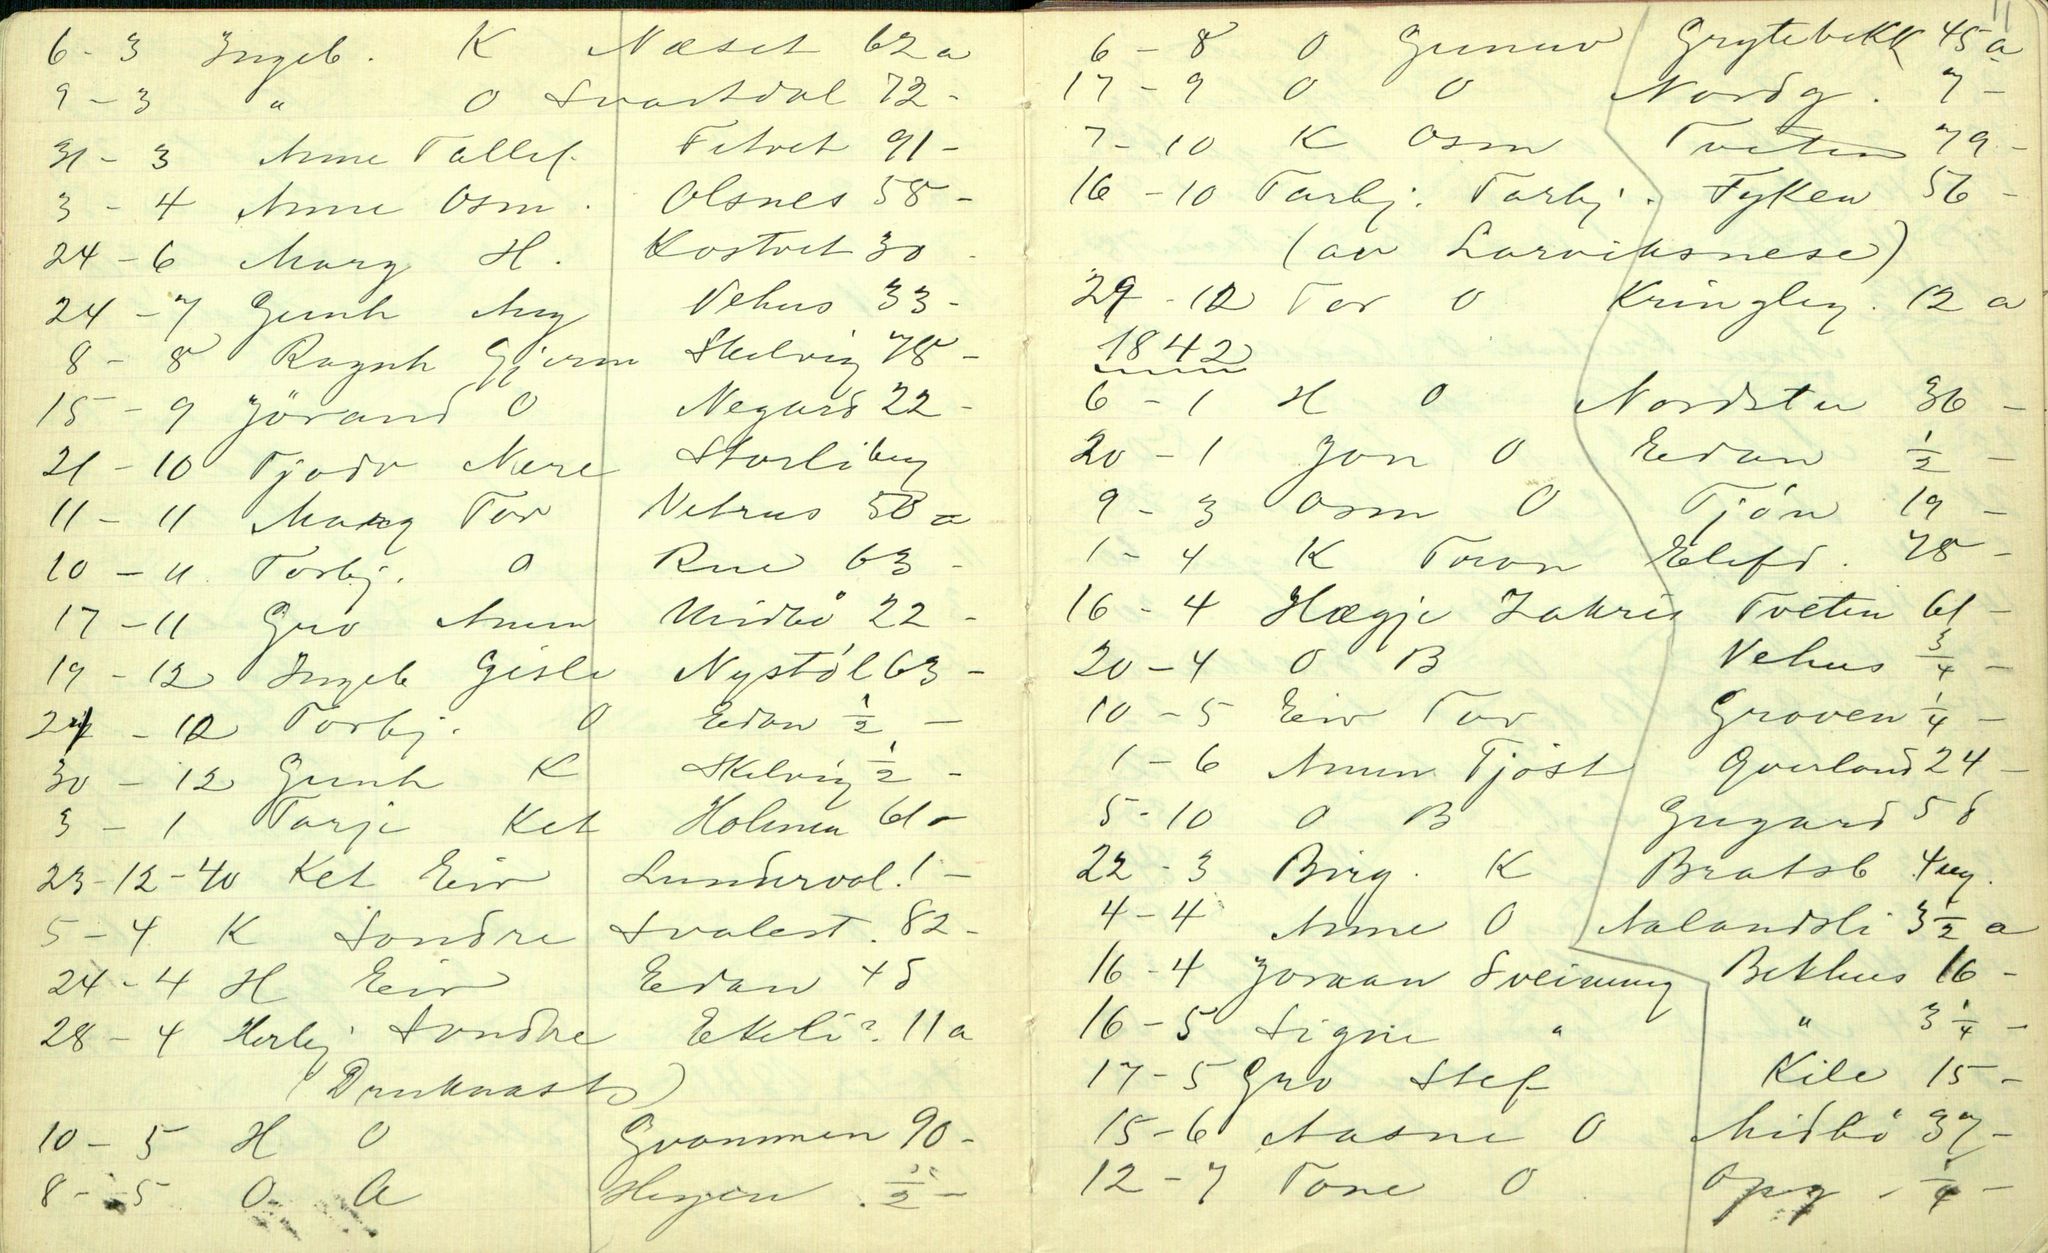 6 - 3 Ingeb. K Næset 62 a
9 - 3 " O Svartdal 72 -
31 - 3 Anne Tallef. Fitvet 91 -
3 - 4 Anne Osm. Olsnes 58 -
24 - 6 Marg H. Kostvet 30 -
24 - 7 Gunh Aug Vehus 33 -
8 - 8 Ragnh Gjerm Skelvig 78 -
15 - 9 Jörand O Negard 22 -
21 - 10 Tjodv Nere Storliberg
11 - 11 Marg Tov Vetrus 58 a
10 - 11 Torbj. O Rue 63 -
17 - 11 Gro Anun Midbö 22 -
19 - 12 Ingeb Gisle Nystöl 63 -
24 - 12 Torbj. O Edan ½ -
30 - 12 Gunh K Skelvig ½ -
3 - 1 Tarje Ket Holmen 61 -
23-12-40 Ket Eiv Lunderval. 1 -
5 - 4 K Sondre Svalest. 82 -
24 - 4 H Eiv Edan 45
28 - 4 Herbj. Sondre Ekeli? 11 a
(Druknast)
10 - 5 H O Gvammen 90 -
8 - 5 O A ½ -
11
6 - 8 O Gunuv Grytebekk 45 a
17 - 9 O O Nordg. 7 -
7 - 10 K Osm Tveten 79 -
16 - 10 Tarbj. Tarbj. Fyken 56 -
(av Larviksnese)
29 - 12 Tov O Kringleg. 12 a
1842
6 - 1 H O Nordstu 36 -
20 - 1 Jon O Edan ½ -
9 - 3 Osm O Tjón 19 -
1 - 4 K Toron Elefd. 78 -
16 - 4 Hægje Zakris Tveten 61 -
20 - 4 O B Vehus ¾ -
10 - 5 Eiv Tov Groven ¼ -
1 - 6 Anun Tjöst Qverland 24 -
5 - 10 O B Gugard 58
22 - 3 Birg. K Bratsb 4
4 - 4 Anne O Aalandsli 3½ a
16 - 4 Joraan Sveinung Bekhus 16 -
16 - 5 Signe " " 3¼ -
17 - 5 Gro Stef Kile 15 -
15 - 6 Aasne O Midbö 37 -
12 - 7 Tone O Opg. ¼ -